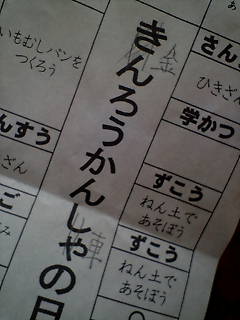 さんす
ひきざん
学かつ
ずこう
ねん土で
あそぼう
ずこう
ねん土で
あそぼう
きんろうかんしゃの日
金
車
いもむしパンを
つくろう
んすう
ざん
ご
み